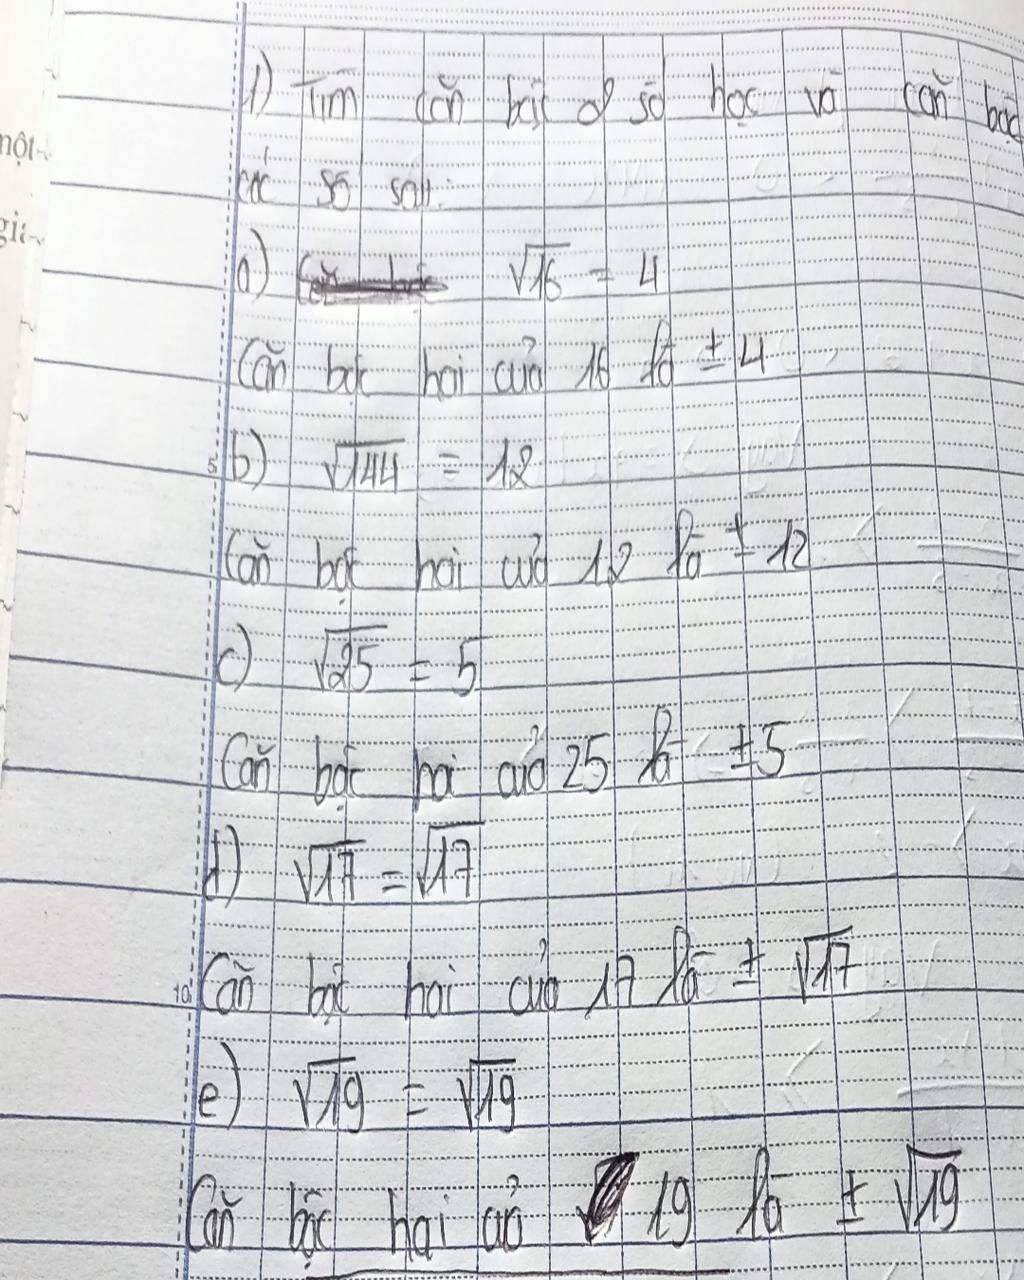 một
giá
1) Tìm căn bậc 2 số học và căn bậc
các số sau:
a) √16 = 4
Căn bậc hai của 16 là ± 4
5 b) √144 = 12
Căn bậc hai của 12 là ± 12
c) √25 = 5
Căn bậc hai của 25 là ±5
d) √17 = √17
10 Căn bậc hai của 17 là ± √17
e) √19 = √19
Căn bậc hai của 19 là ± √19